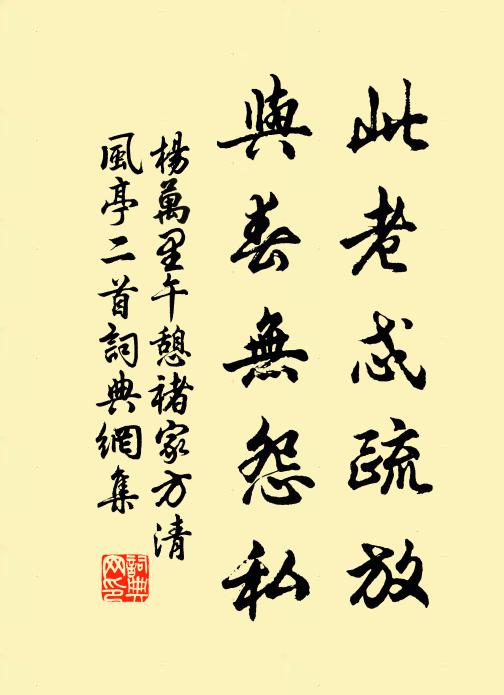 此老忒疏放
與春無怨私
楊萬里午憩褚家方清
風亭二首詞典網集
詞典网印